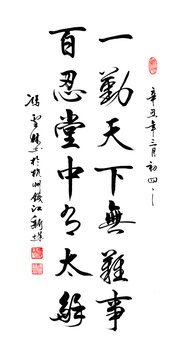 年三月初四
一勤天下無難事
百忍堂中有太龢
於杭州錢江新城